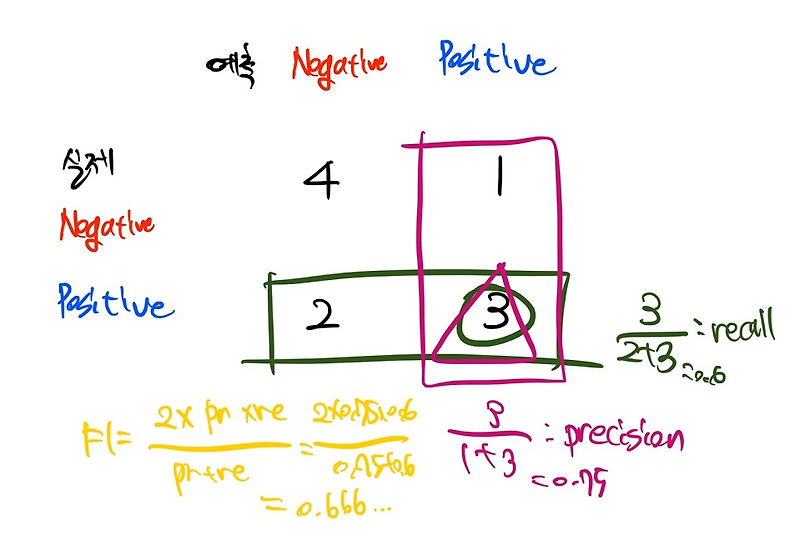 예측 Negative Positive
실제
4 1
Negative
Positive
2 3
3
2+3
: recall
=0.6
F1= 2 x pr x re
pr+re
= 2x0.75x0.6
0.75+0.6
= 0.666...
3
1+3
: precision
=0.75